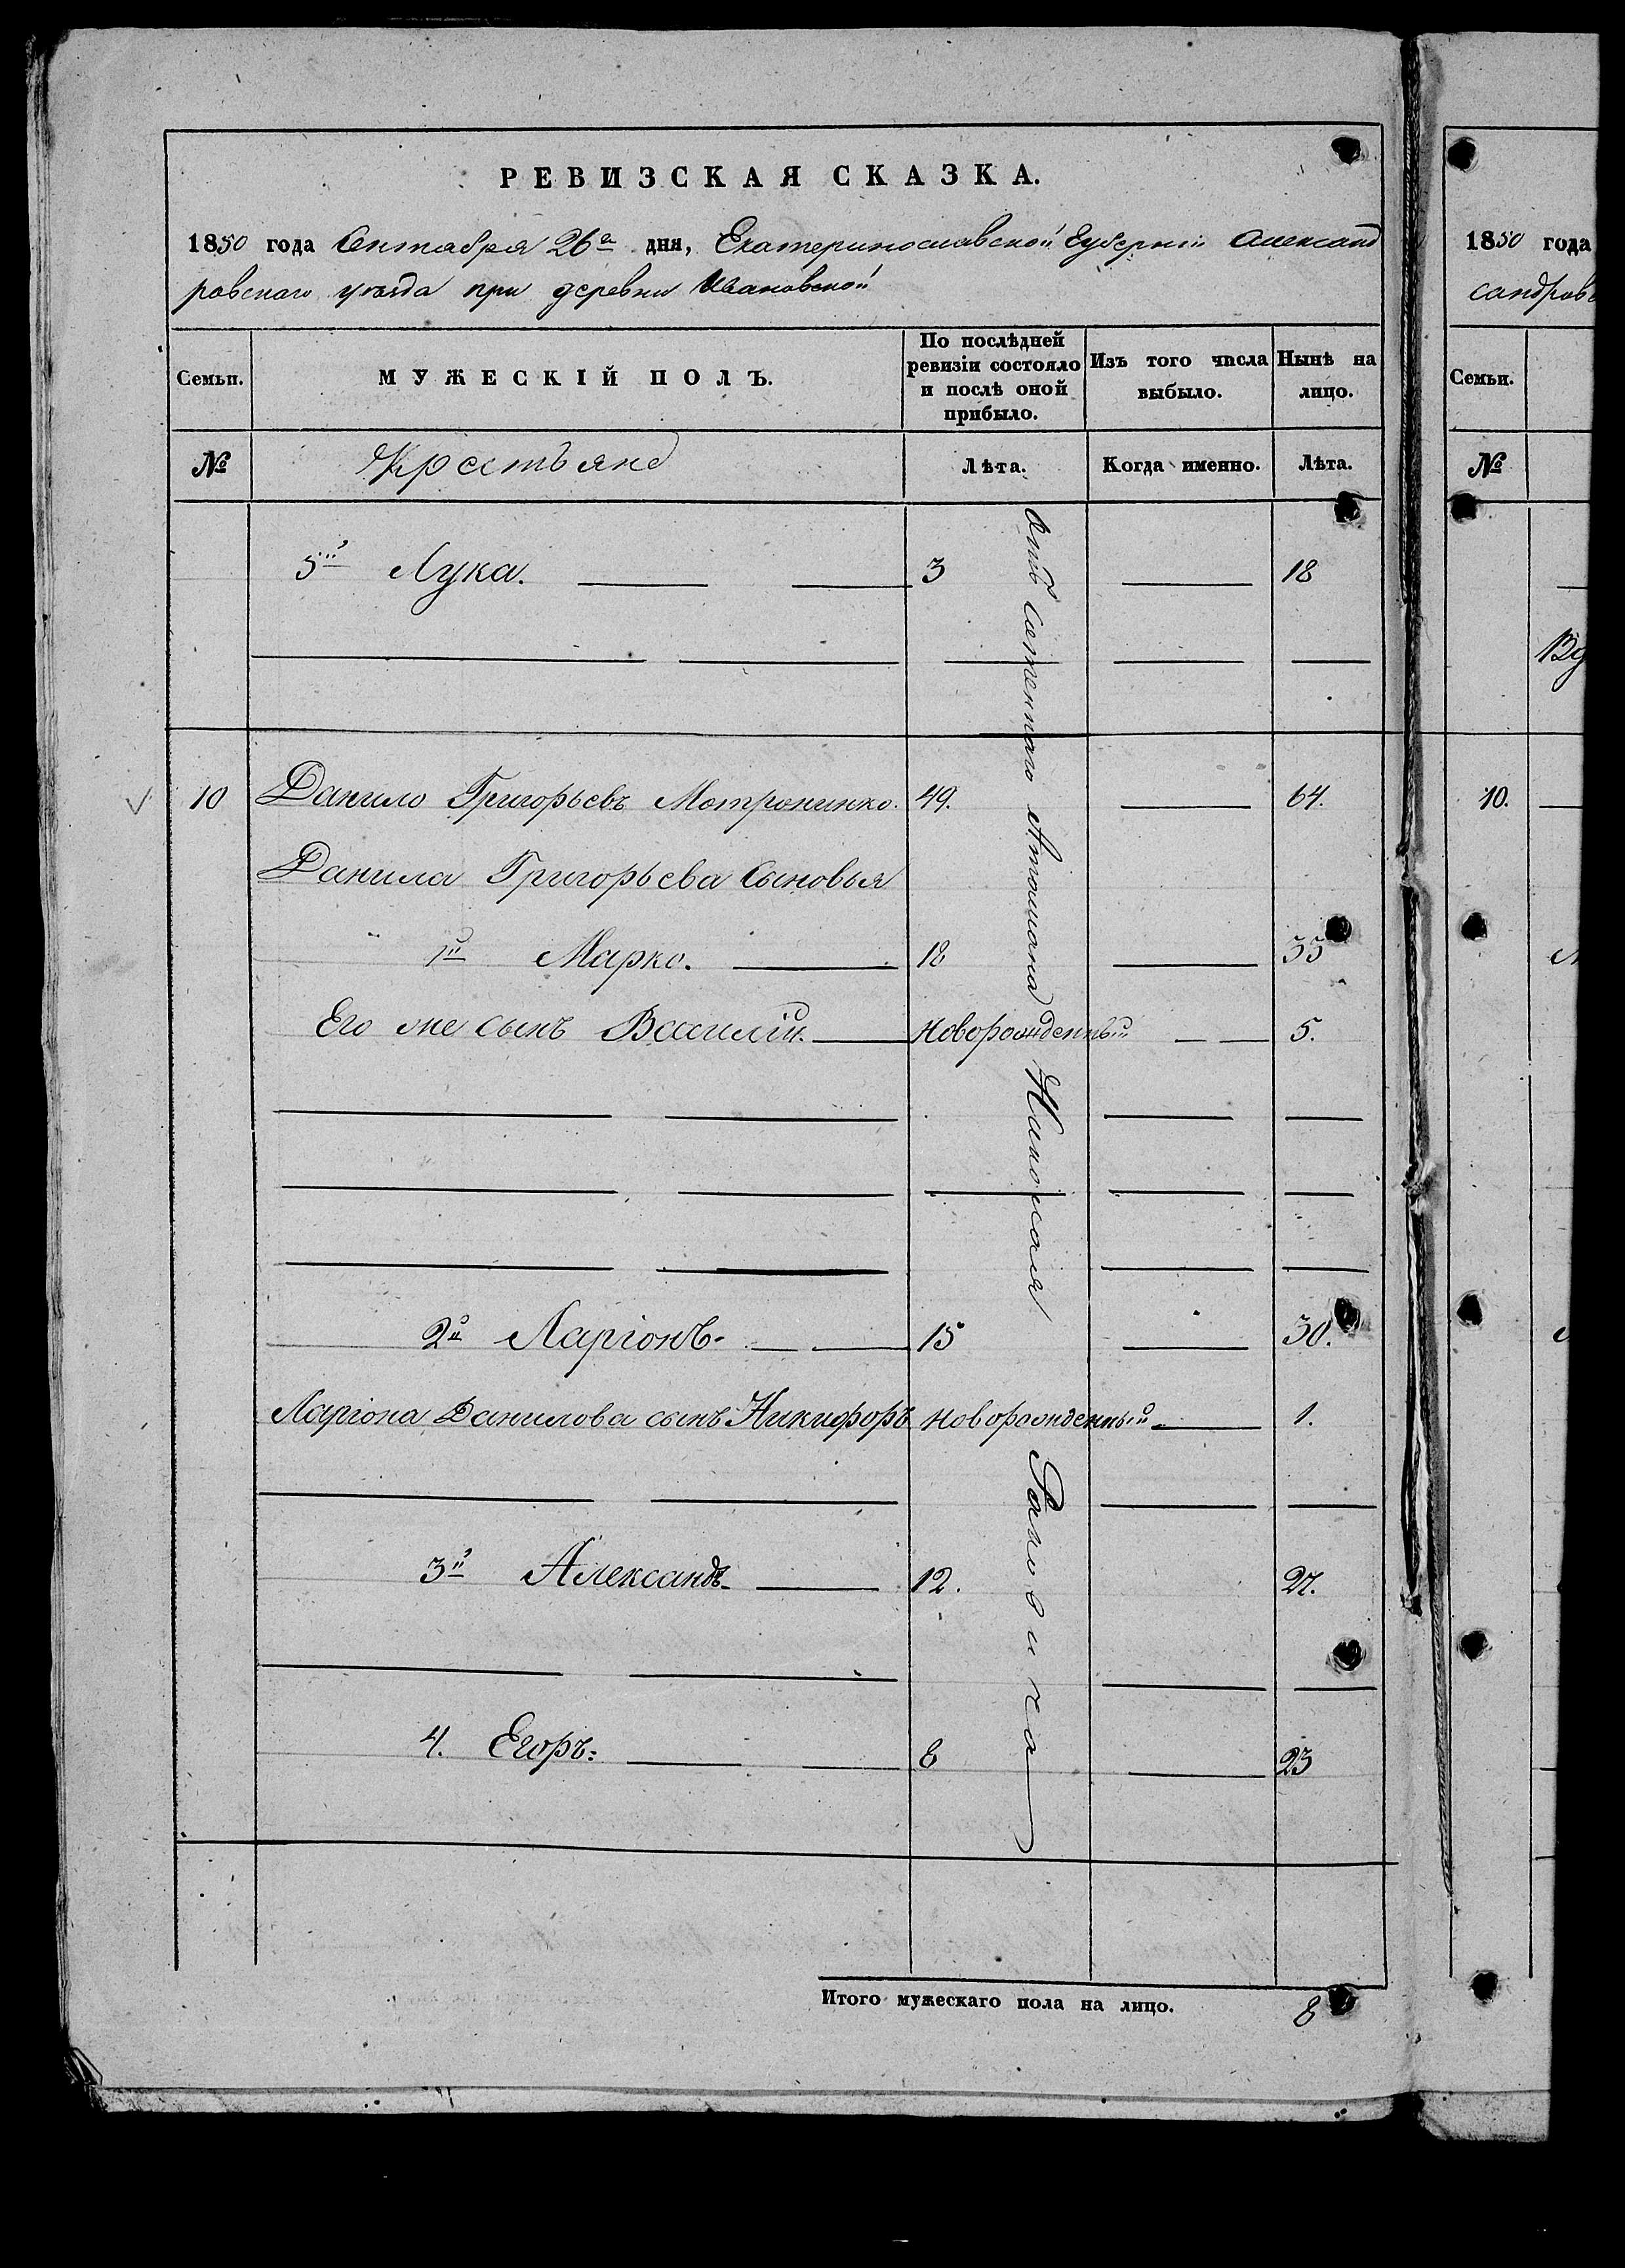 РЕВИЗСКАЯ СКАЗКА.
1850 года Сентября 26го дня, Екатеринославской Губерніи Александ
ровскаго уѣзда при деревни Ивановской
Семьи. МУЖЕСКІЙ ПОЛЪ. По послѣдней ревизіи состояло и послѣ оной прибыло. Изъ того числа выбыло. Нынѣ на лицо.
№ Крестьяне Лѣта. Когда именно. Лѣта.
5й Лука. 3 18
10 Данило Григорьевъ Мотронинко. 49. 64.
Данила Григорьева Сыновья
1й Марко. 18 33
Его же сынъ Василій. Новорожденный 5.
2й Ларіонъ. 15 30.
Ларіона Данилова сынъ Никифоръ Новорожденный 1.
3й Александъ 12. 27.
4. Егоръ: 8 23
Итого мужескаго пола на лицо. 8
Николая
1850 года
сандров
Семьи.
№
Вд
10.